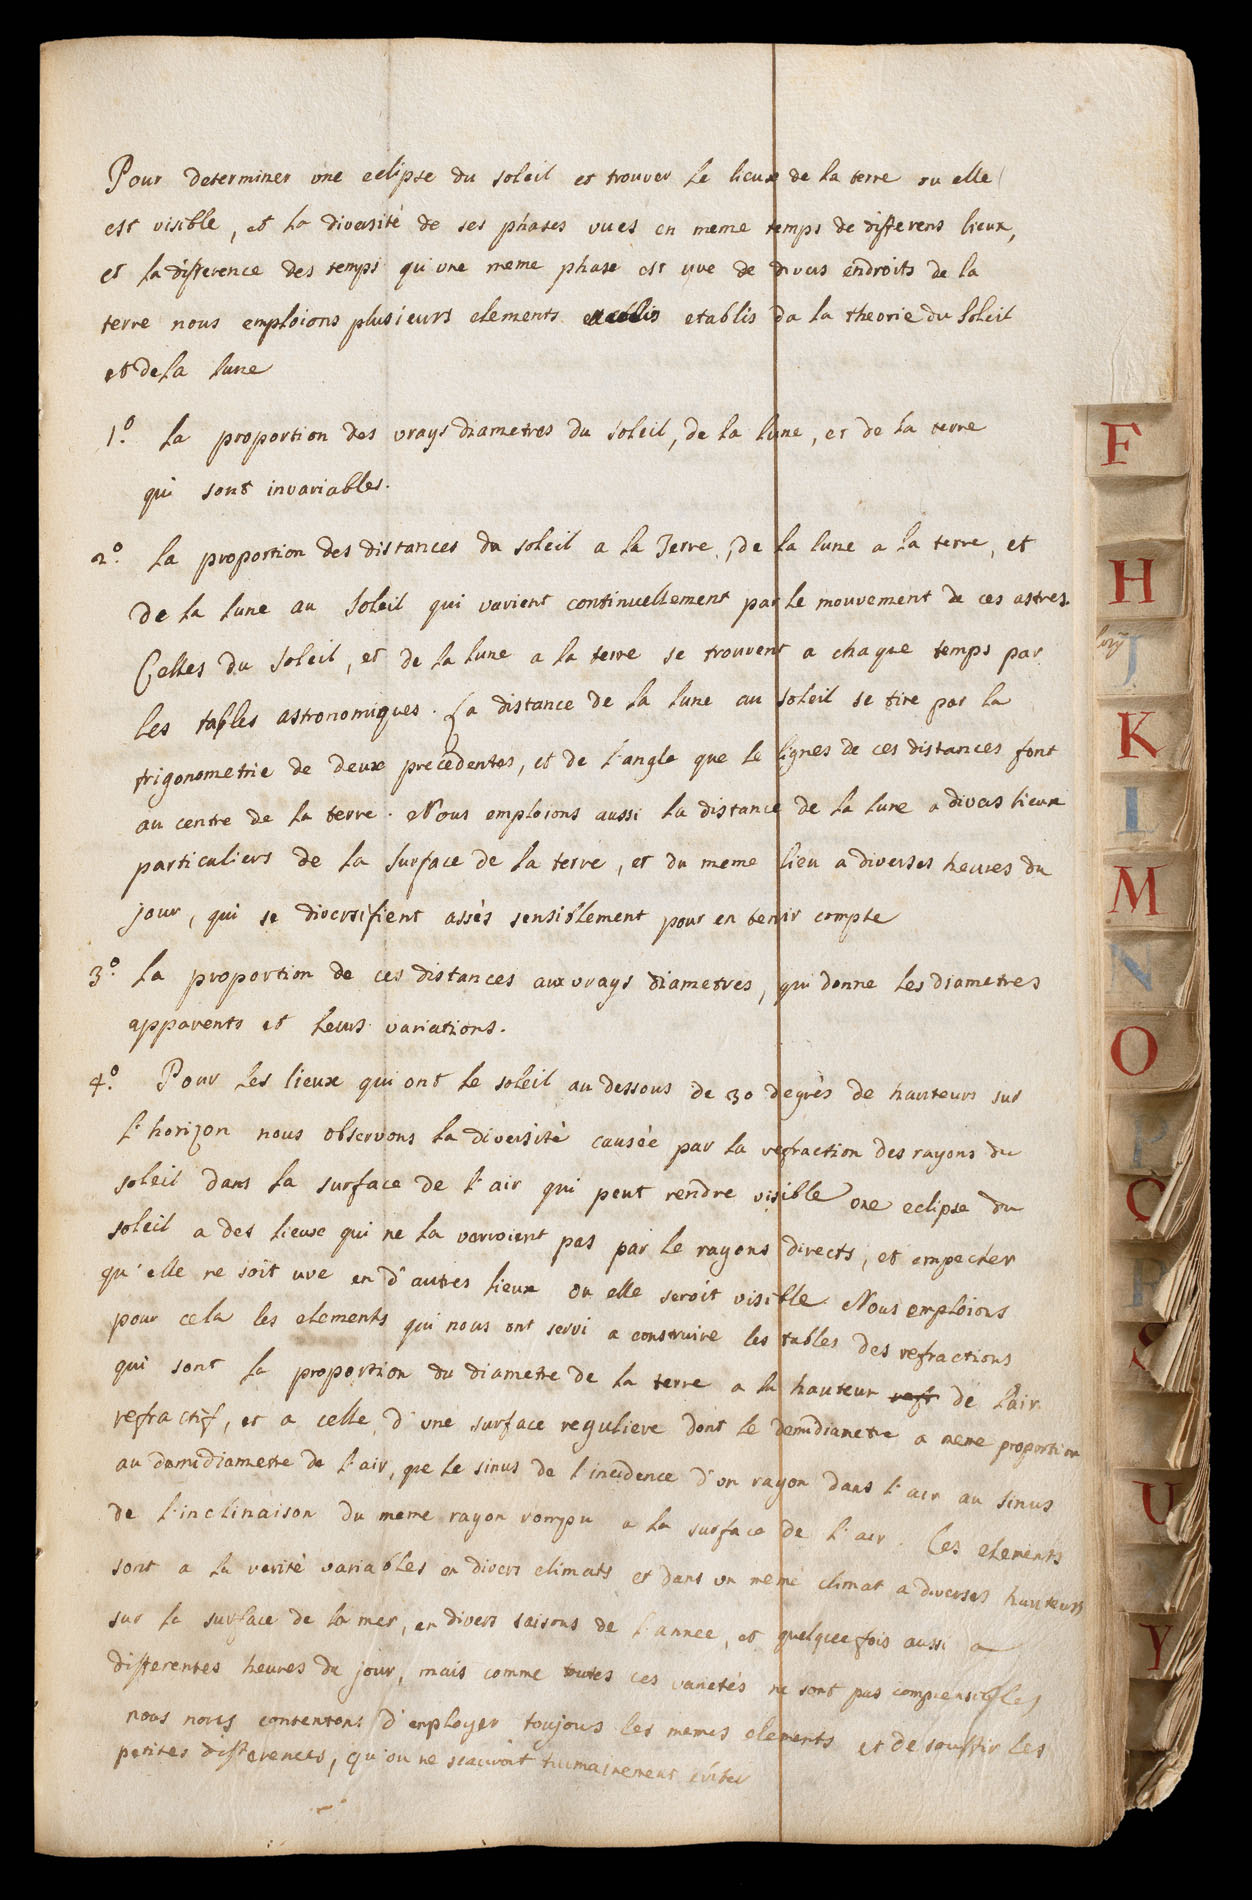 Pour determiner une eclipse du soleil et trouver le lieux de la terre ou elle
est visible, et la diversité de ses phases vues en meme temps de differens lieux,
et la difference des temps qu'une meme phase est vue de divers endroits de la
terre nous emploions plusieurs elements etablis da la theorie du Soleil
et de la lune
1.º la proportion des vrays diametres du soleil, de la lune, et de la terre
qui sont invariables.
2.º la proportion des distances du soleil a la Terre, de la lune a la terre, et
de la lune au Soleil qui varient continuellement par le mouvement de ces astres.
Celles du Soleil, et de la lune a la terre se trouvent a chaque temps par
les tables astronomiques. La distance de la lune au soleil se tire par la
trigonometrie de deux precedentes, et de l'angle que le lignes de ces distances font
au centre de la terre. Nous emploions aussi la distance de la lune a divers lieux
particuliers de la surface de la terre, et du meme lieu a diverses heures du
jour, qui se diversifient assès sensiblement pour en tenir compte
3.º la proportion de ces distances aux vrays diametres, qui donne les diametres
apparents et leurs variations.
4.º Pour les lieux qui ont le soleil au dessous de 30 degrès de hauteurs sur
l'horizon nous observons la diversité causée par la refraction des rayons du
soleil dans la surface de l'air qui peut rendre visible une eclipse du
soleil a des lieux qui ne la verroient pas par le rayons directs, et empecher
qu'elle ne soit vue en d'autres lieux ou elle seroit visible. Nous emploions
pour cela les elements qui nous ont servi a construire les tables des refractions
qui sont la proportion du diametre de la terre a la hauteur refr de l'air
refractif, et a celle d'une surface reguliere dont le demidiametre a meme proportion
au demidiametre de l'air, que le sinus de l'incidence d'un rayon dans l'air au sinus
de l'inclinaison du meme rayon rompu a la surface de l'air. Ces elements
sont a la verité variables en divers climats et dans un meme climat a diverses hauteurs
sur la surface de la mer, en divers saisons de l'année, et quelquefois aussi a
differentes heures de jour, mais comme toutes ces varietés ne sont pas comprensibles,
nous nous contentons d'employer toujours les memes elements et de souffrir les
petites differences, qu'on ne scauroit humainement eviter
F
H
J
K
L
M
N
O
P
Q
R
S
U
Y